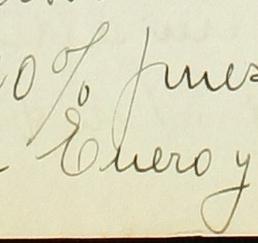 0% pues
Enero y